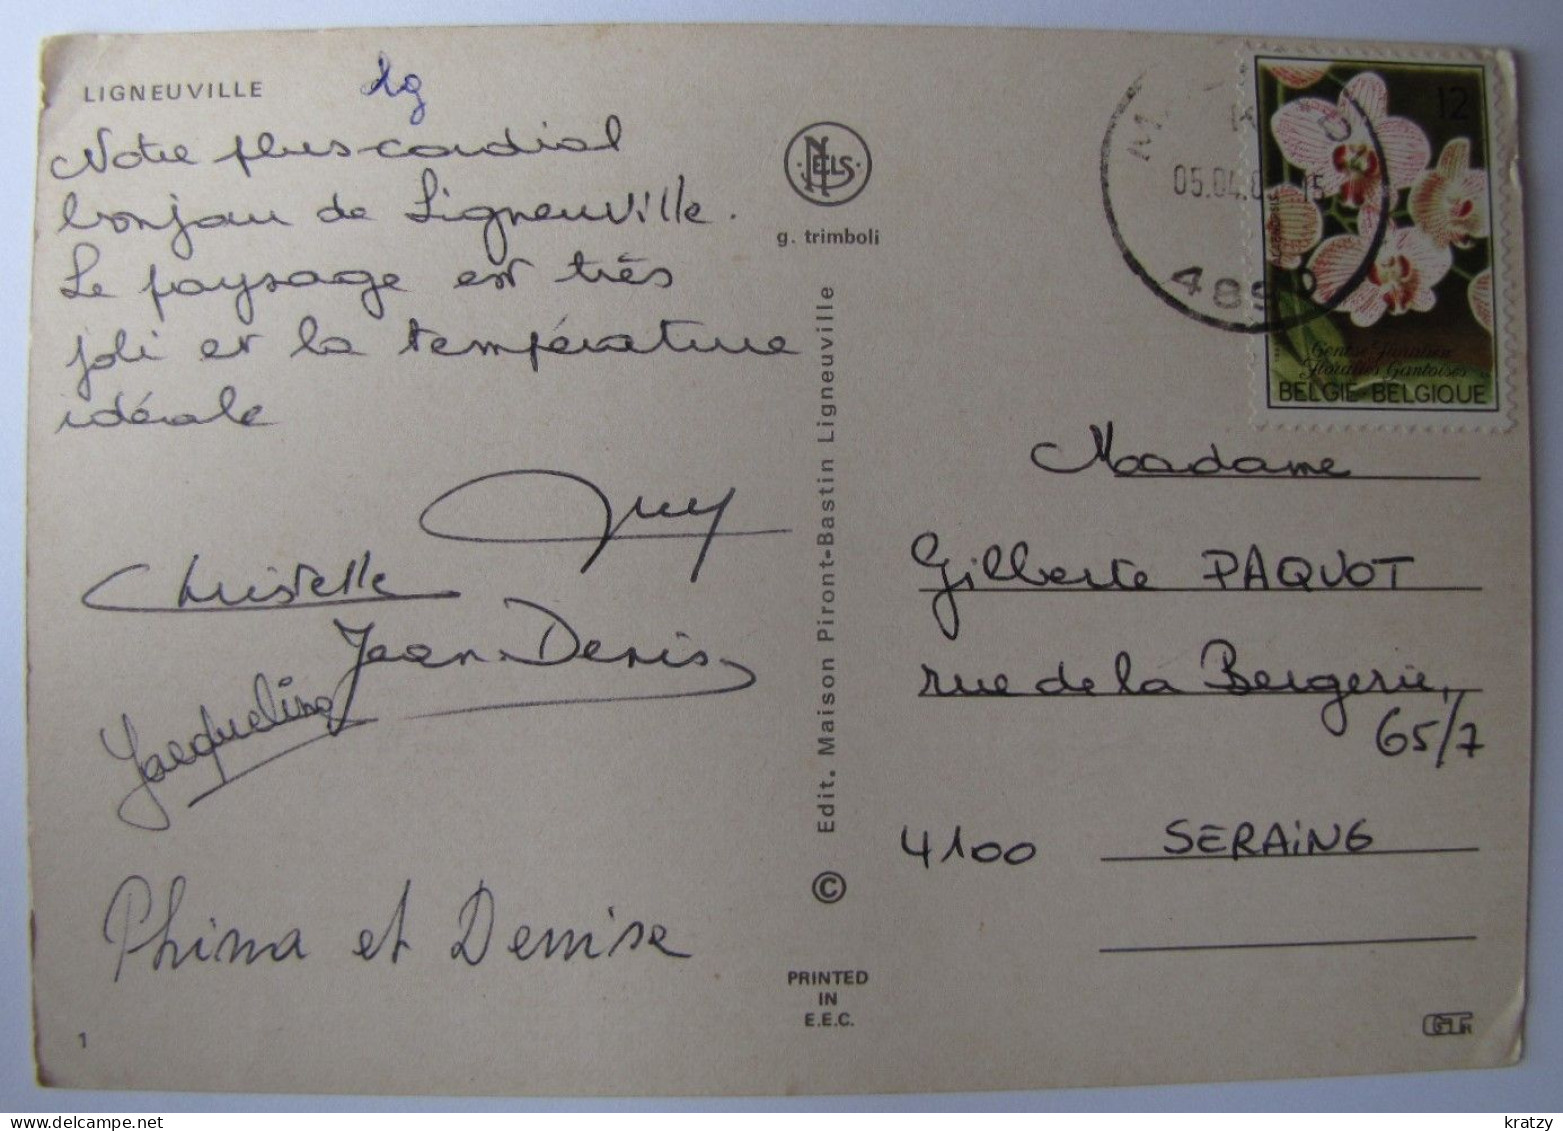 LIGNEUVILLE
Notre plus cordial
bonjour de Ligneuville.
Le paysage est très
joli et la température
idérale
Guy
Christelle
Jean-Denis
Jacqueline
Phina et Denise
1
NELS
g. trimboli
Edit. Maison Piront-Bastin Ligneuville
©
PRINTED
IN
E.E.C.
05.04.8
12
Gentse Floraliën
Floralies Gantoises
BELGIE-BELGIQUE
Madame
Gilberte PAQUOT
rue de la Bergerie,
65/7
4100 SERAING
kratzy